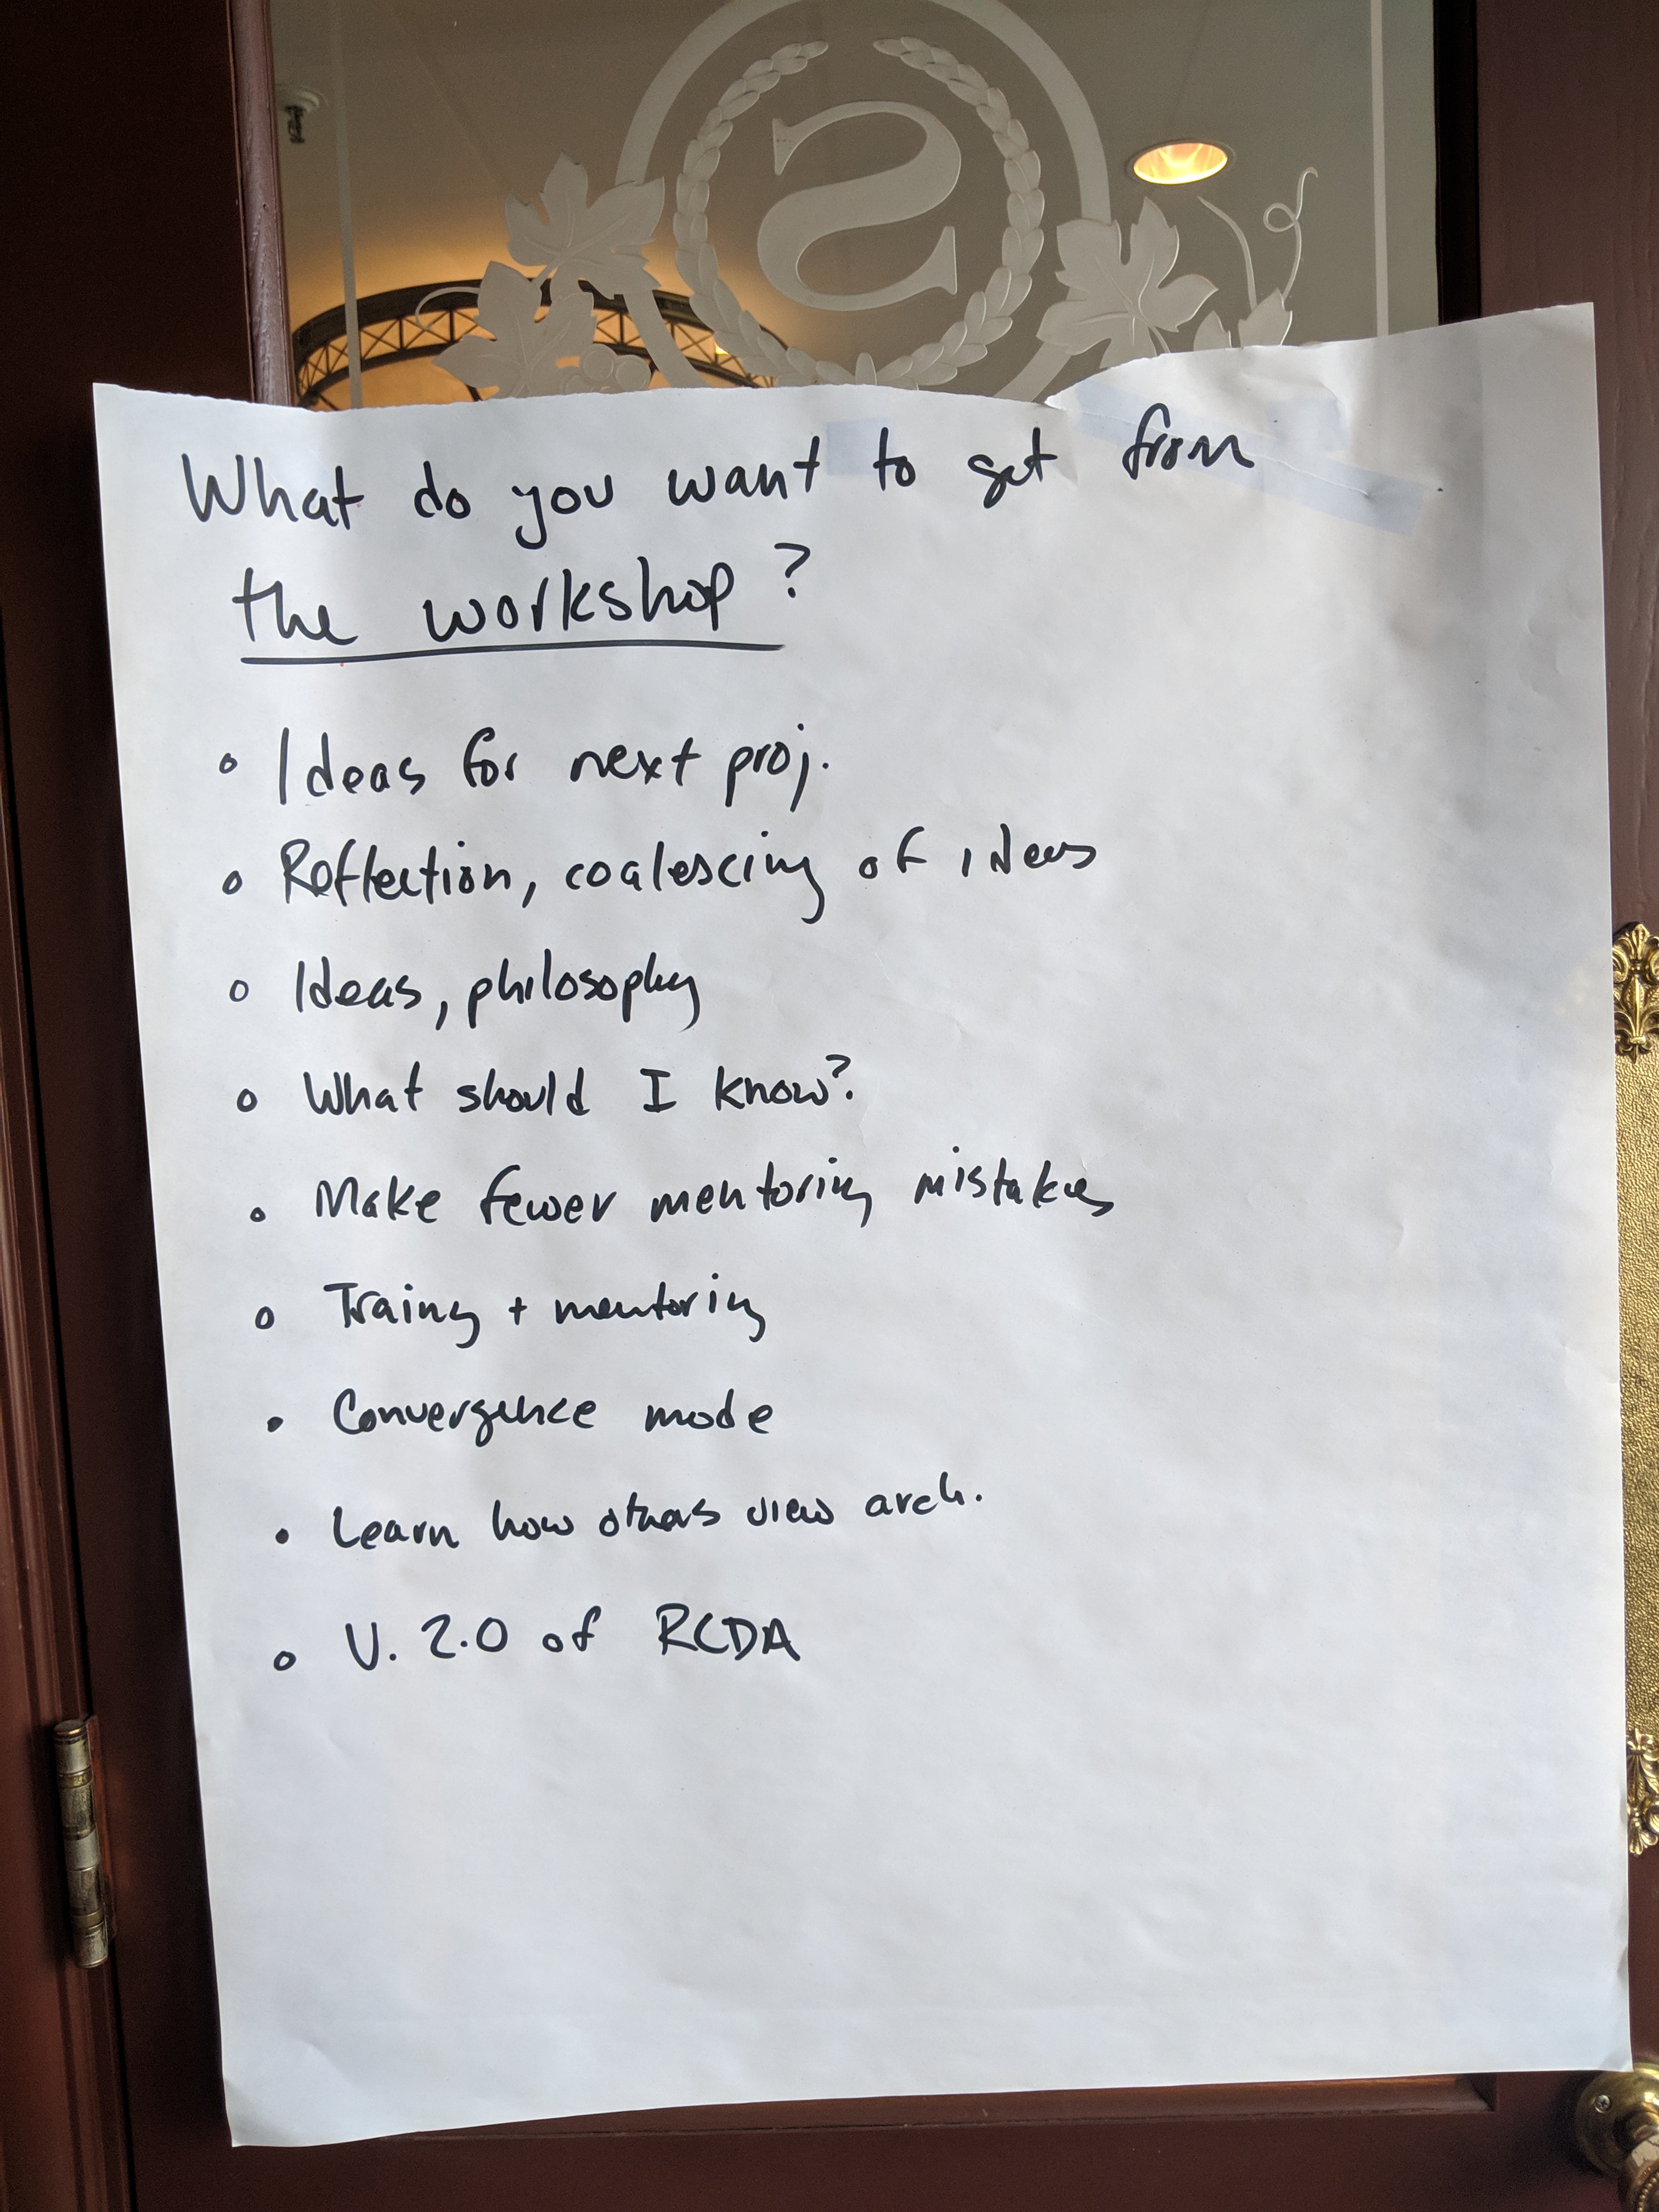 S
What do you want to get from
the workshop?
• Ideas for next proj.
• Reflection, coalescing of ideas
• Ideas, philosophy
• What should I know?
• Make fewer mentoring mistakes
• Training + mentoring
• Convergence mode
• Learn how others view arch.
• V. 2.0 of RCDA